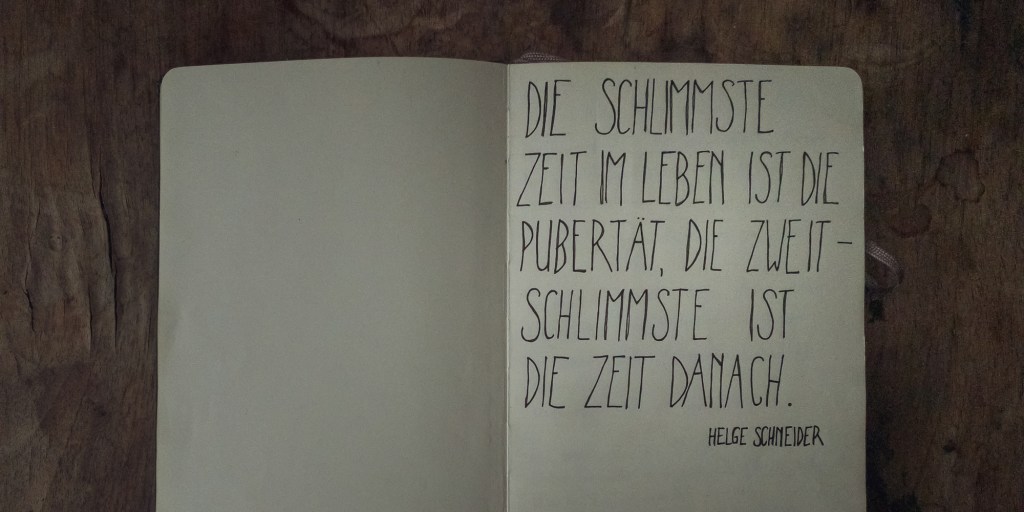 DIE SCHLIMMSTE
ZEIT IM LEBEN IST DIE
PUBERTÄT, DIE ZWEIT-
SCHLIMMSTE IST
DIE ZEIT DANACH.
HELGE SCHNEIDER